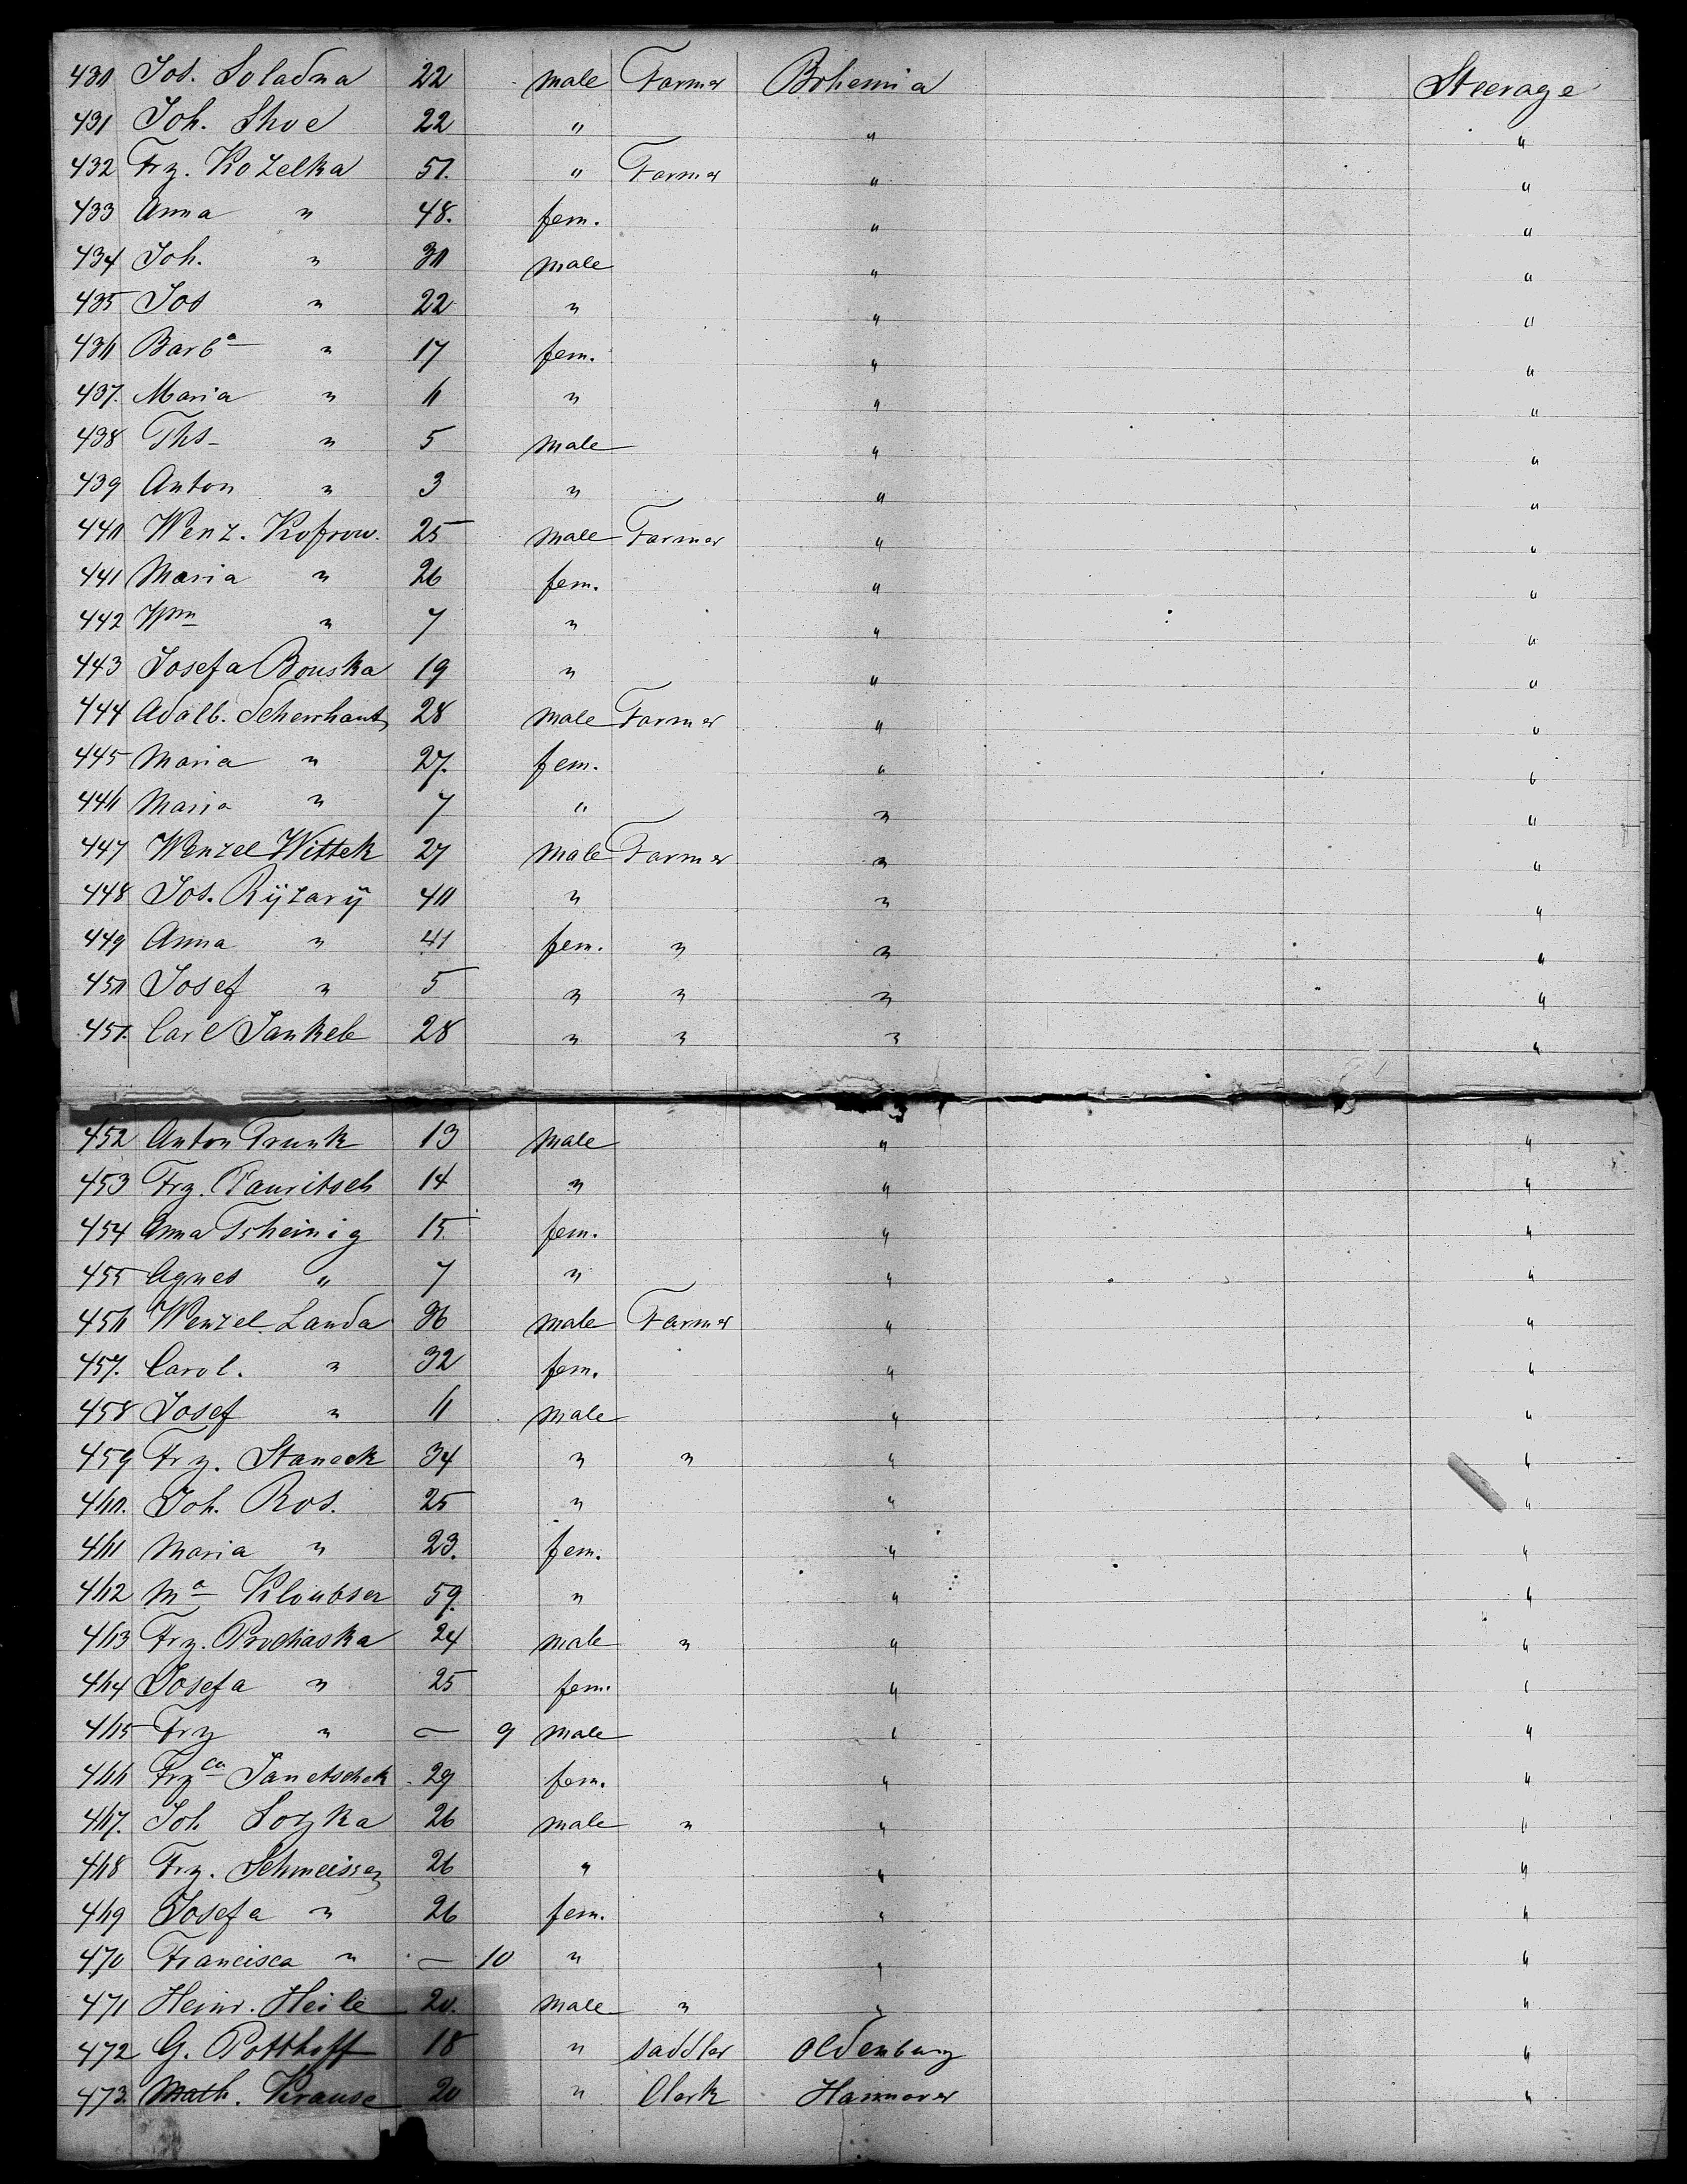 430 Jos. Soladna 22 male Farmer Bohemia Steerage
431 Joh. Shve 22 " " "
432 Frz. Kozelka 51. " Farmer " "
433 Anna " 48. fem. " "
434 Joh. " 30 male " "
435 Jos " 22 " " "
436 Barbª " 17 fem. " "
437. Maria " 11 " " "
438 Ths " 5 male " "
439 Anton " 3 " " "
440 Wenz. Kofrow. 25 male Farmer " "
441 Maria " 26 fem. " "
442 " 7 " " "
443 Josefa Bouska 19 " " "
444 Adalb. 28 male Farmer " "
445 Maria " 27. fem. " "
446 Maria " 7 " " "
447 Wenzel Wittek 27 male Farmer " "
448 Jos. Rÿzarÿ 40 " " "
449 Anna " 41 fem. " " "
450 Josef " 5 " " " "
451. Carl Jankele 28 " " " "
452 Anton Trunk 13 male " "
453 Frz. Tauritsch 14 " " "
454 Anna Tsheinig 15. fem. " "
455 Agnes " 7 " " "
456 Wenzel Landa 36 male Farmer " "
457. Carol. " 32 fem. " "
458 Josef " 11 male " "
459 Frz. Staneck 34 " " " "
460. Joh. Ros. 25 " " "
461 Maria " 23. fem. " "
462 Mª Kloubser 59. " " "
463 Frz. Prochaska 24 male " " "
464 Josefa " 25 fem. " "
465 Frz " — 9 male " "
466 Frzca Janetschek 29 fem. " "
467. Joh Sozka 26 male " " "
468 Frz. Schmeisser 26 " " "
469 Josefa " 26 fem. " "
470 Francisca " — 10 " " "
471 Heinr. Heile 20. male " " "
472 G. Potthoff 18 " saddler Oldenburg "
473. Math. Krause 20 " Clerk Hannover "